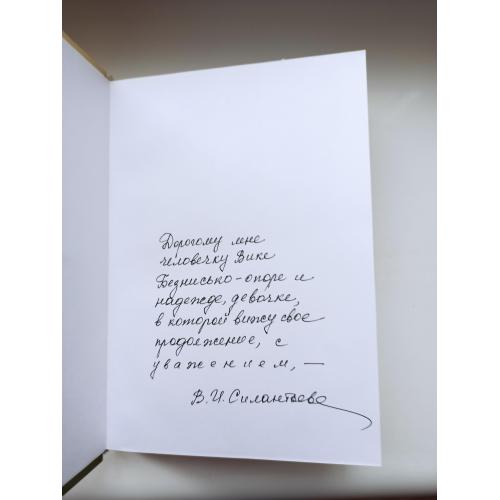 Дорогому мне
человечку Вике
Безнисько-опоре и
надежде, девочке,
в которой вижу свое
продолжение, с
уважением, —
В.И. Силантьева